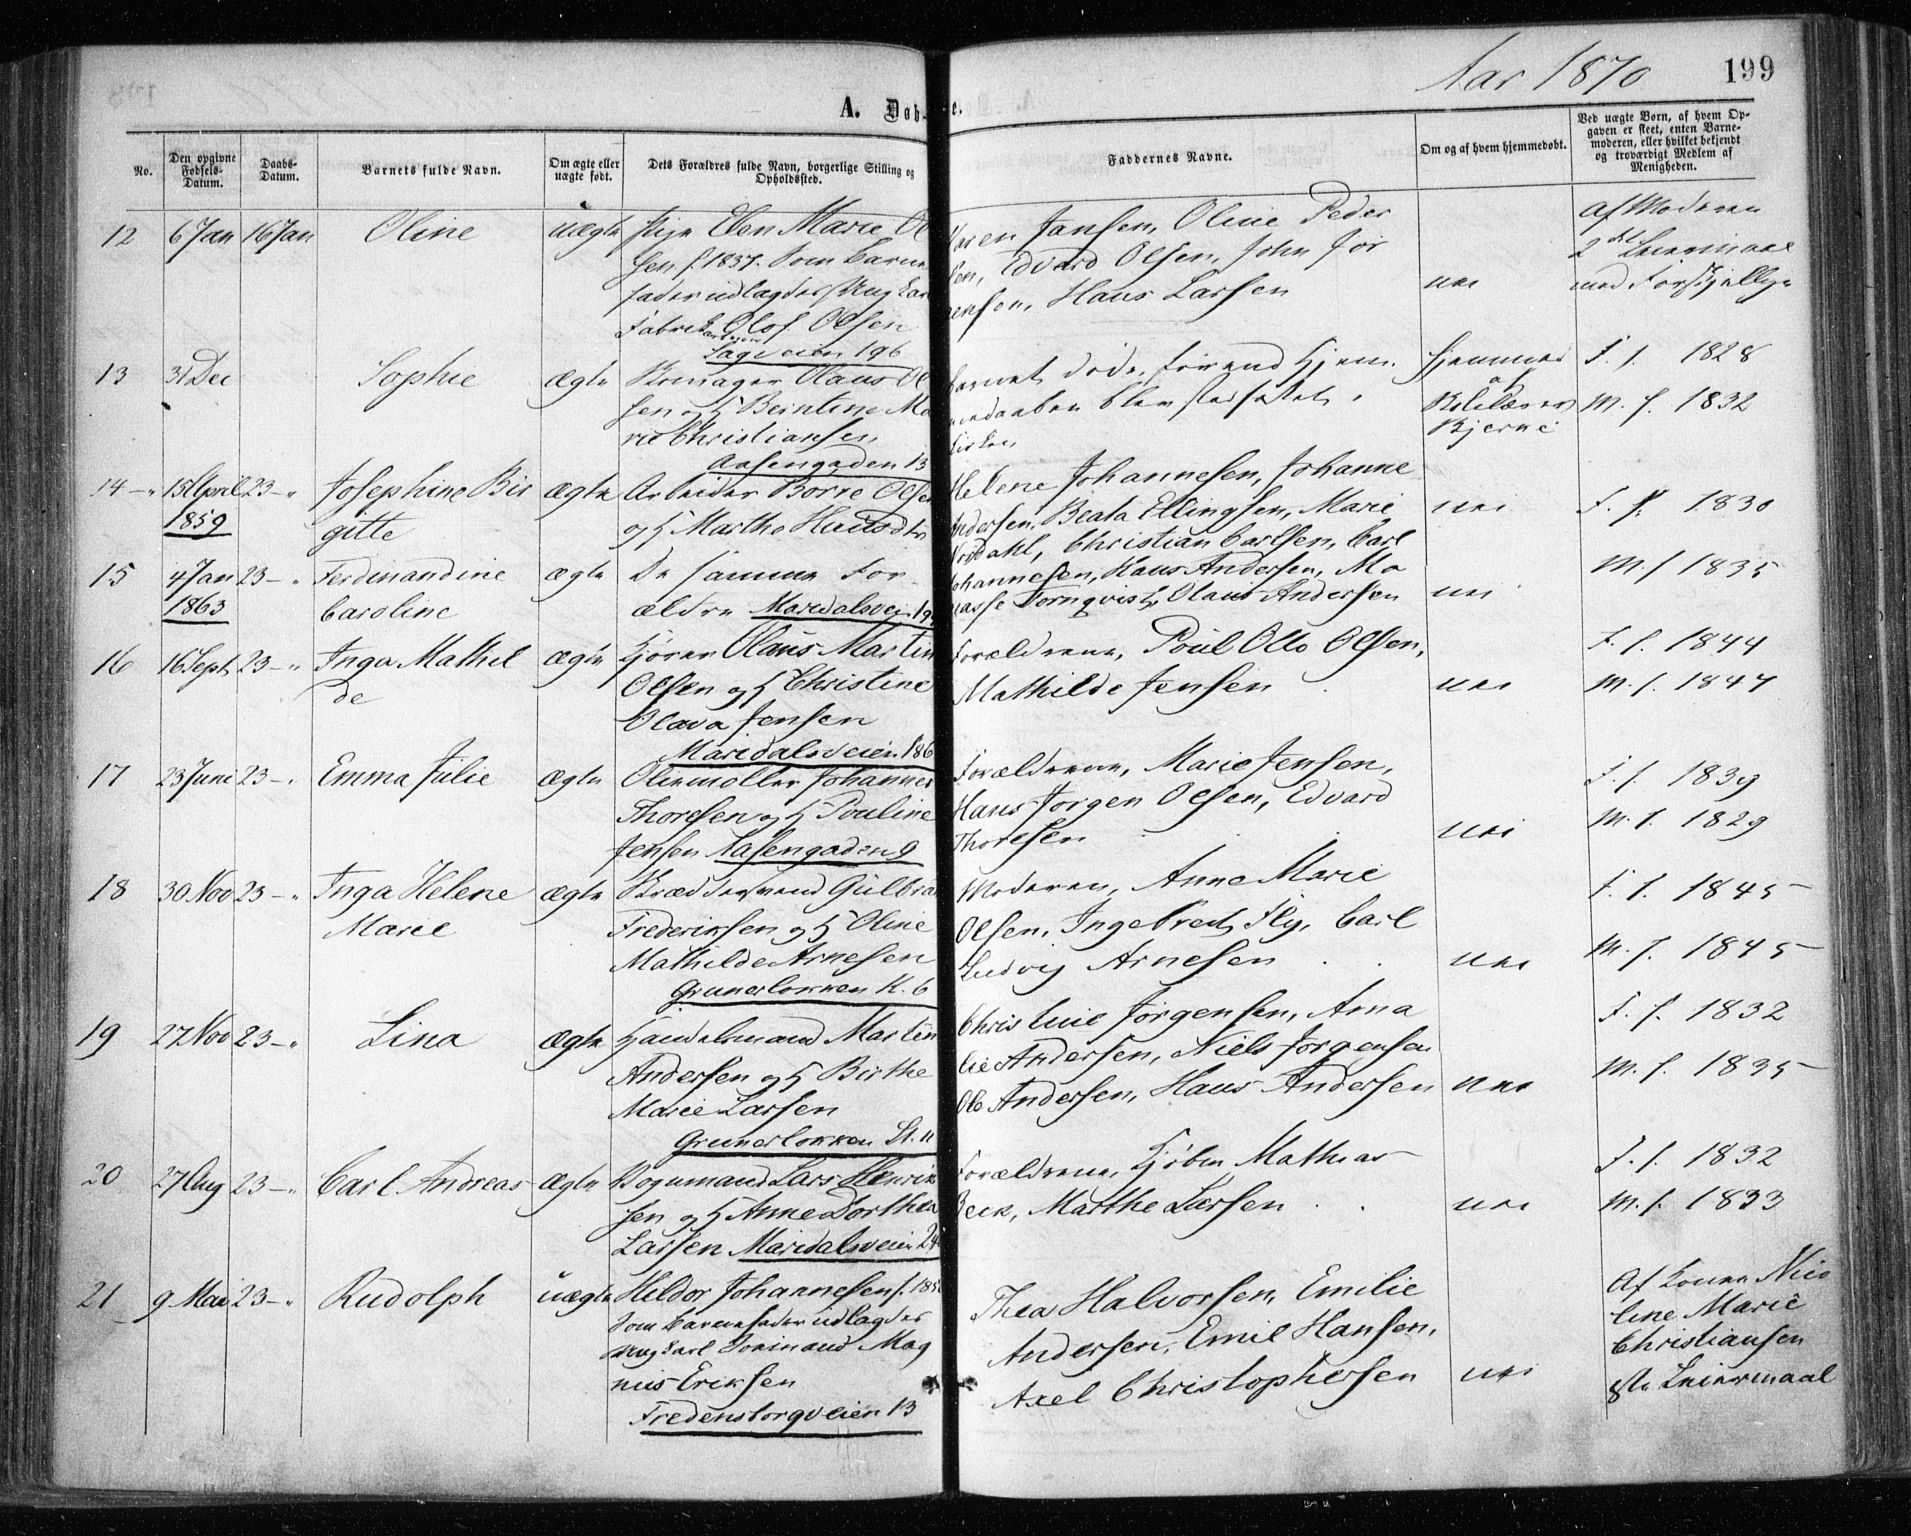 Aar 1870
199
A. Døb-
e.
No.
Den opgivne Fødsels-Datum.
Daabs-Datum.
Barnets fulde Navn.
Om ægte eller uægte født.
Dets Forældres fulde Navn, borgerlige Stilling og Opholdssted.
Faddernes Navne.
Om og af hvem hjemmedøbt.
Ved uægte Børn, af hvem Op-
gaven er skeet, enten Barne-
moderen, eller hvilket bekjendt
og troværdigt Medlem af
Menigheden.
12 6 Jan 16 Jan Oline uægte Pige Elen Marie Ol
sen f. 1837. Som Barne
fader udlagdes Ungkarl
Fabrik Olof Olsen
Sagveien 196
Karen Jansen, Oline Peder
sen, Edvard Olsen, John Jør
gensen, Hans Larsen
nei
Af Moderen
2det Leiermaal
med Forskjellige
13 31 Dec Sophie ægte Olaus Ol
sen og H Berntine Ma
rie Christiansen
Aasengaden 13
Barnet døde, førend Hjem.
medaaben blev stadfæstet i
Kirken
hjemmed
af
Bjerke
F. f. 1828
M. f. 1832
14 - " 15 April 23 - " Josephine Bir ægte Arbeider Børre Olsen
1859 gitte og H Marthe
Helene Johannesen, Johanne
Andersen, Beata Ellingsen, Marie
Nordahl, Christian Carlsen, Carl
nei
F. f. 1830
15 4 Jan 23 - " Ferdinandine ægte De samme For-
1863 Caroline ældre Maridalsvei 19
Johannesen, Hans Andersen, Ma
nasse Tornqvist, Olaus Andersen
nei
M. f 1835
16 16 Sept 23 - " Inga Mathil ægte Kjører Olaus Martin
de Olsen og H Christine
Olava Jensen
Maridalsveien 186
Forældrene, Poul Otto Olsen,
Mathilde Jensen
nei
F. f. 1844
M. f. 1847
17 23 Juni 23 - " Emma Julie ægte Oliemøller Johannes
Thoresen og H Pouline
Jensen Aasengaden 9
Forældrene, Marie Jensen,
Hans Jørgen Olsen, Edvard
Thoresen
nei
F. f. 1839
M. f. 1829
18 30 Nov 23 - " Inga Helene ægte Skræddersvend Gulbra
Marie Frederiksen og H Oline
Mathilde Arnesen
Grunerløkken K. 6
Moderen, Anne Marie
Olsen, Ingebret Fly, Carl
Ludvig Arnesen
nei
F. f. 1845
M. f. 1845
19 27 Nov 23 - " Lina ægte Handelsmand Martin
Andersen og H Birthe
Marie Larsen
Grunerløkken Lt. 11
Christine Jørgensen, Ama
lie Andersen, Niels Jørgensen
Ole Andersen, Hans Andersen
nei
F. f. 1832
M. f. 1835
20 27 Aug 23 - " Carl Andreas ægte Vognmand Lars Henrik
sen og H Anne Dorthea
Larsen Maridalsveien 24
Forældrene, Mathias
Beck, Marthe Larsen
nei
F. f. 1832
M. f. 1833
21 9 Mai 23 - " Rudolph uægte Heldor Johannesen f. 185
Som Barnefader udlagdes
Ungkarl Mag
nus Eriksen
Fredensborgveien 13
Thea Halvorsen, Emilie
Andersen, Emil Hansen,
Axel Christophersen
nei
Af Konen Nico
line Marie
Christiansen
1ste Leiermaal